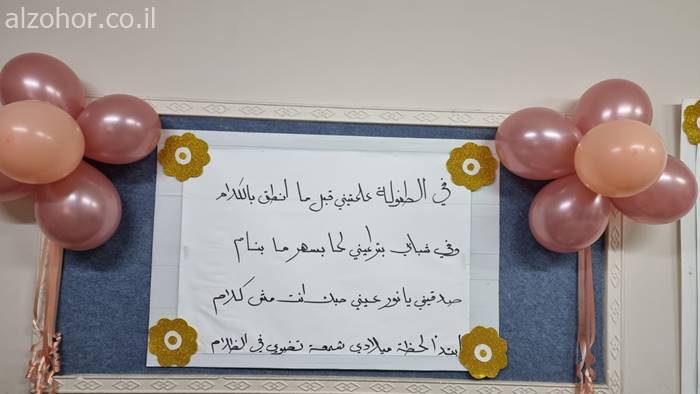 alzohor.co.il
في الطفولة علمتيني قبل ما انطق بالكلام
وفي شبابي بتراعيني لما بسهر ما بنام
صدقيني يا نور عيني حبك انت مش كلام
ابتدا لحظة ميلادي شمعة تضوي في الظلام